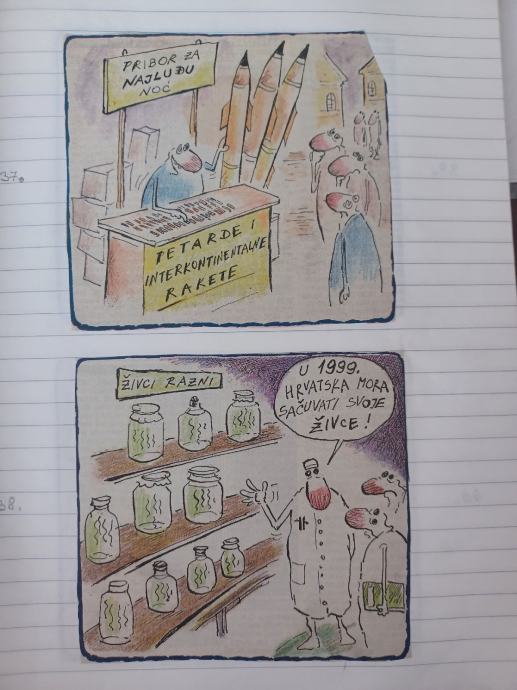 37.
PRIBOR ZA
NAJLUĐU
NOĆ
PETARDE I
INTERKONTINENTALNE
RAKETE
38.
ŽIVCI RAZNI
U 1999.
HRVATSKA MORA
SAČUVATI SVOJE
ŽIVCE!